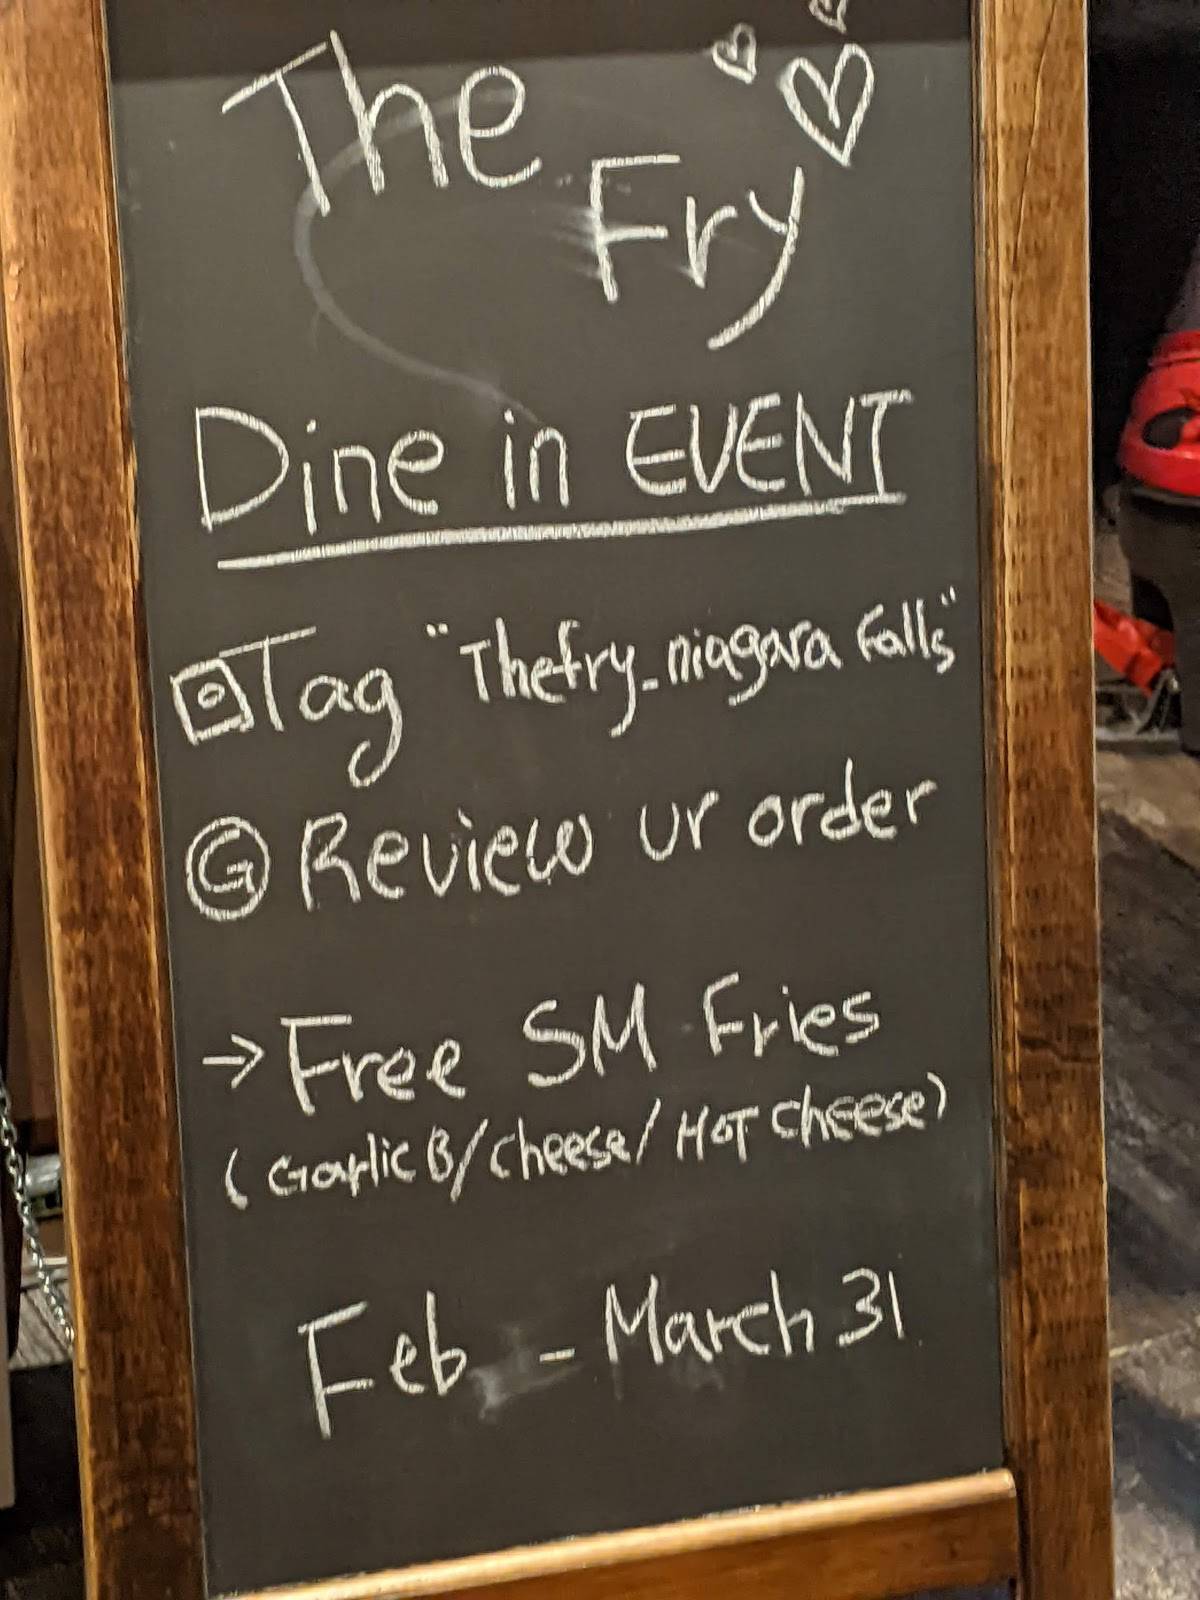 The
Fry
Dine in EVENT
Tag "Thefry_niagara Falls"
G Review ur order
→ Free SM Fries
(Garlic B/cheese/HOT cheese)
Feb - March 31